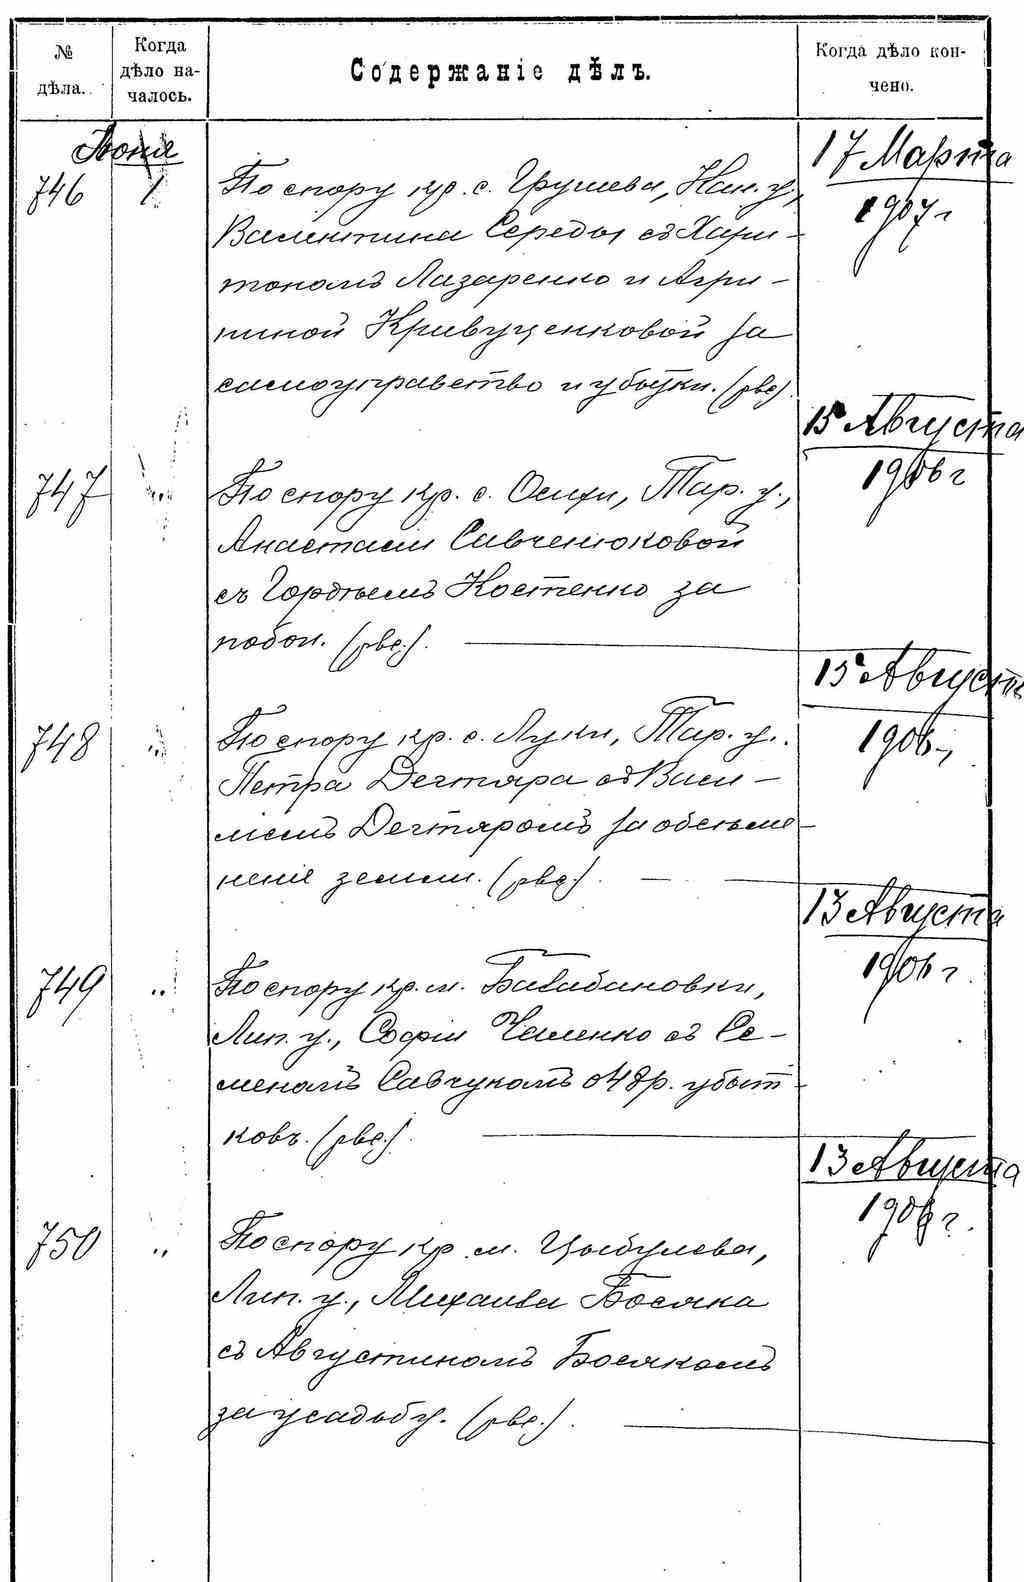 № дѣла.
Когда дѣло началось.
Содержаніе дѣлъ.
Когда дѣло кончено.
Іюня
746
1
По спору кр. с. Грушева, Кан. у.,
Валентина Середы съ Хари-
тономъ Лазаренко и Агри-
пиной Кривущенковой за
самоуправство и убытки. (рве)
17 Марта
1907 г
747
"
По спору кр. с. Осищи, Тар. у.,
Анастасіи Савченюковой
съ Гордѣемъ Костенко за
побои. (рве.).
15 Августа
1906 г
748
"
По спору кр. с. Луки, Тар. у.
Петра Дегтяра съ Васи-
лiемъ Дегтяромъ за обсѣме-
неніе земли. (рве.).
15 Августа
1906
749
"
По спору кр. м. Балабановки,
Лип. у., Софіи Чаленко съ Се-
меномъ Савчукомъ о 48 р. убыт-
ковъ. (рве.).
13 Августа
1906 г.
750
"
По спору кр. м. Цыбулева,
Лип. у., Михаила Босяка
съ Августиномъ Босякомъ
за усадьбу. (рве.).
13 Августа
1906 г.